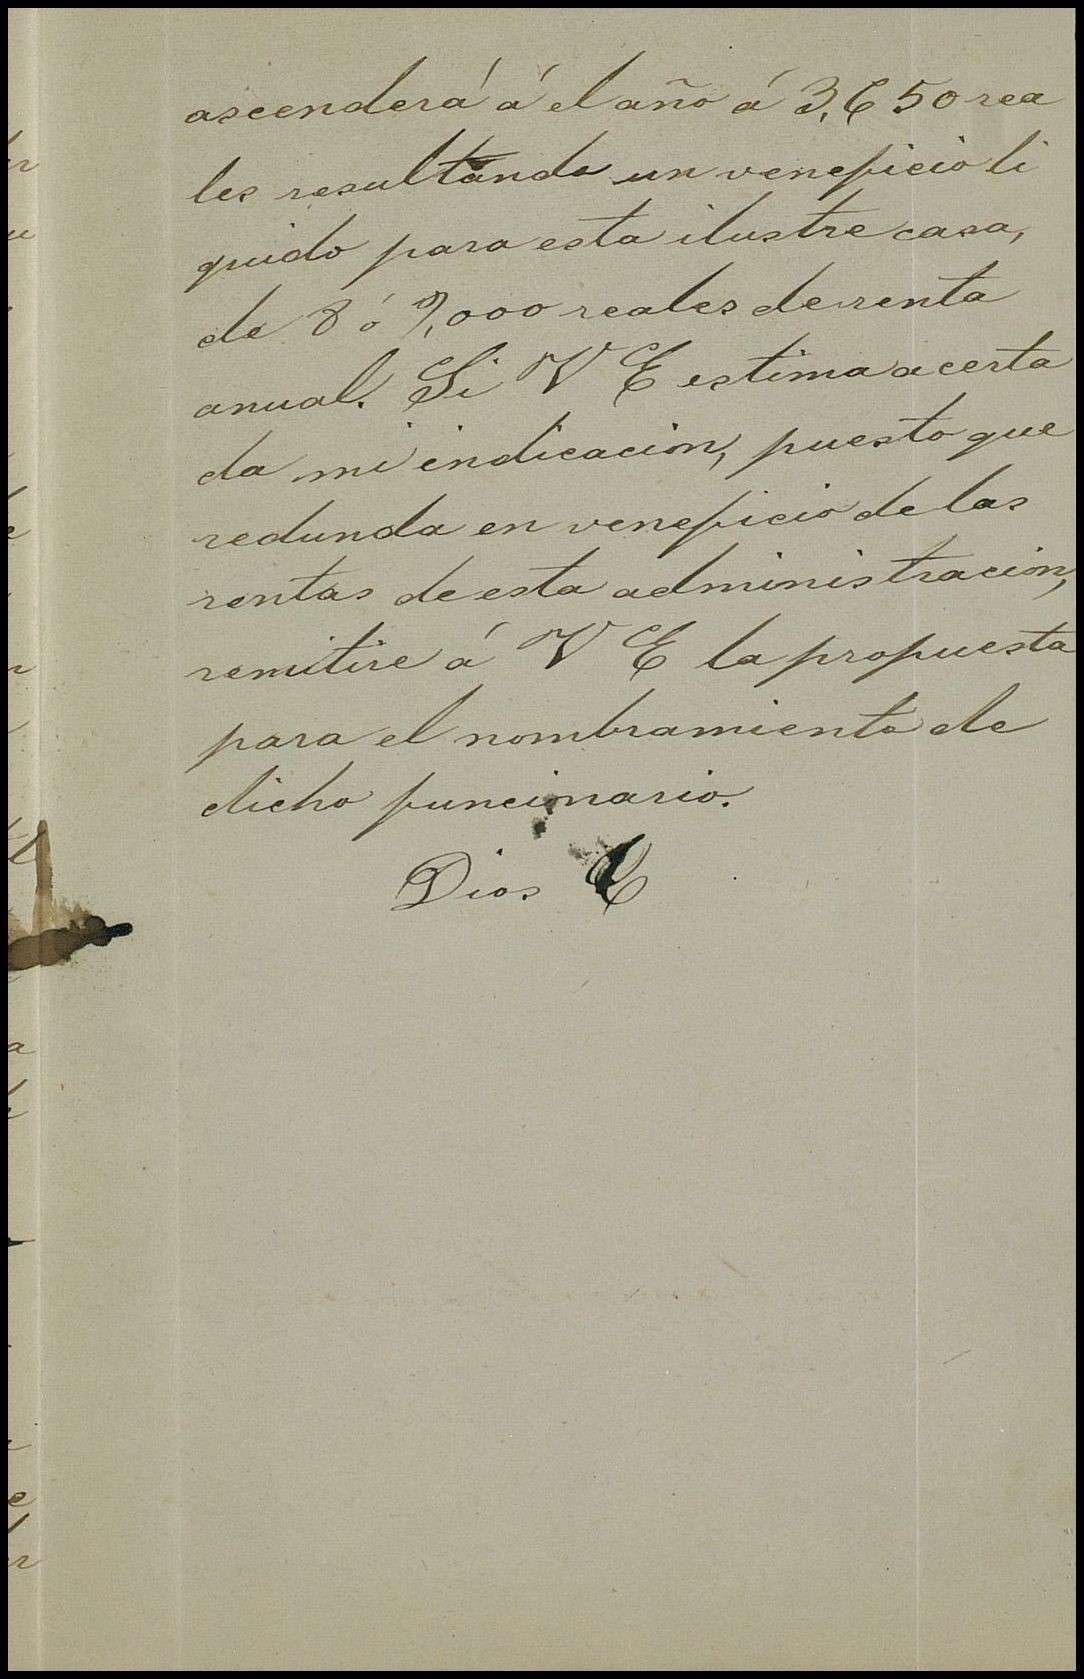 ascenderá á el año á 3,650 rea
les resultando un veneficio li
quido para esta ilustre casa,
de 8 ó 9,000 reales de renta
anual. Si V E estima acerta
da mi indicacion, puesto que
redunda en veneficio de las
rentas de esta administracion,
remitire á V E la propuesta
para el nombramiento de
dicho funcionario.
Dios &